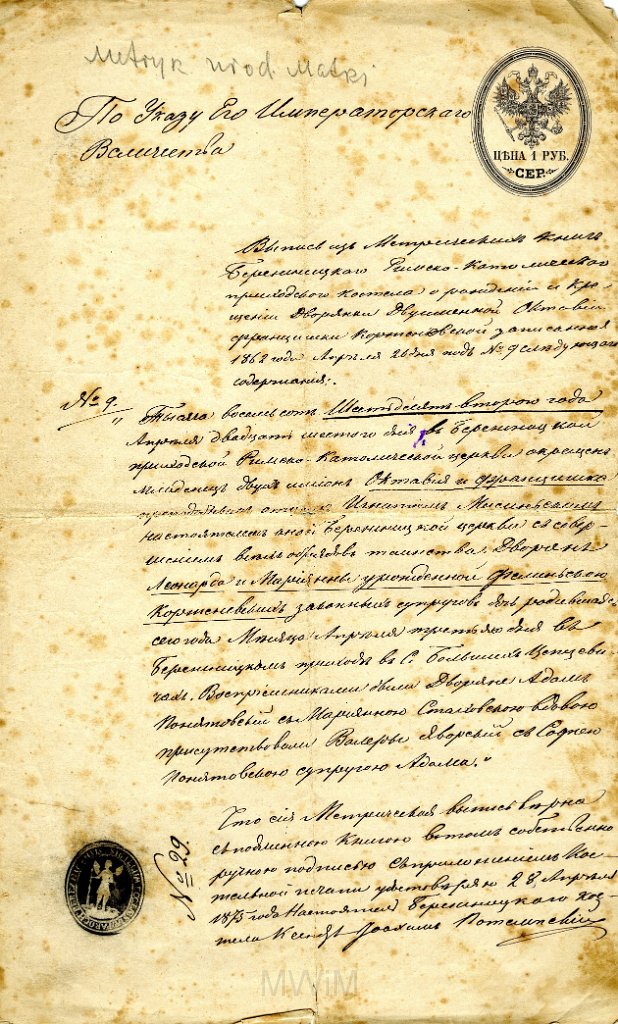 Metryk urod. Matki
По Указу Его Императорскаго
Величества
ЦѢНА 1 РУБ.
СЕР.
Выпись изъ Метрическихъ книгъ
Бережницкаго Римско-Католическаго
приходскаго костела о рожденіи и кре-
щеніи Дворянки Двуименной Октавіи
Францишки Корженіовской записанная
1862 года Апрѣля 26 дня подъ № 9 слѣдующаго
содержанія:
№ 9.
Тысяча восемьсотъ Шестьдесятъ втораго года
Апрѣля двадцать шестого дня въ Бережницкой
приходской Римско-Католической церкви окрещенъ
Младенецъ двумя именъ Октавія и Францишка
Игнатіемъ
настоятелемъ оной Бережницкой церкви съ совер-
шеніемъ всѣхъ обрядовъ таинства. Дворянъ
Леонарда и Маріянны урожденной Фелинською
Корженевскихъ законныхъ супруговъ дочь родившаяся
сего года Мѣсяца Апрѣля третьяго дня въ
Бережницкомъ приходѣ въ С. Большихъ Цепцеви-
чахъ. Воспріемниками были Дворяне Адамъ
Понятовскій съ Маріянною вдовою
присутствовали Валеры Яворскій съ Софіею
Понятовскою супругою Адама."
Что сія Метрическая выпись вѣрна
съ подлинною Книгою въ томъ собственно
ручною подписью съ приложеніемъ Кос-
тельной печати удостовѣряю 28 Апрѣля
1875 года Настоятель Бережницкаго кос-
тела Ксендзъ Іоахимъ
№ 29.
MWiM